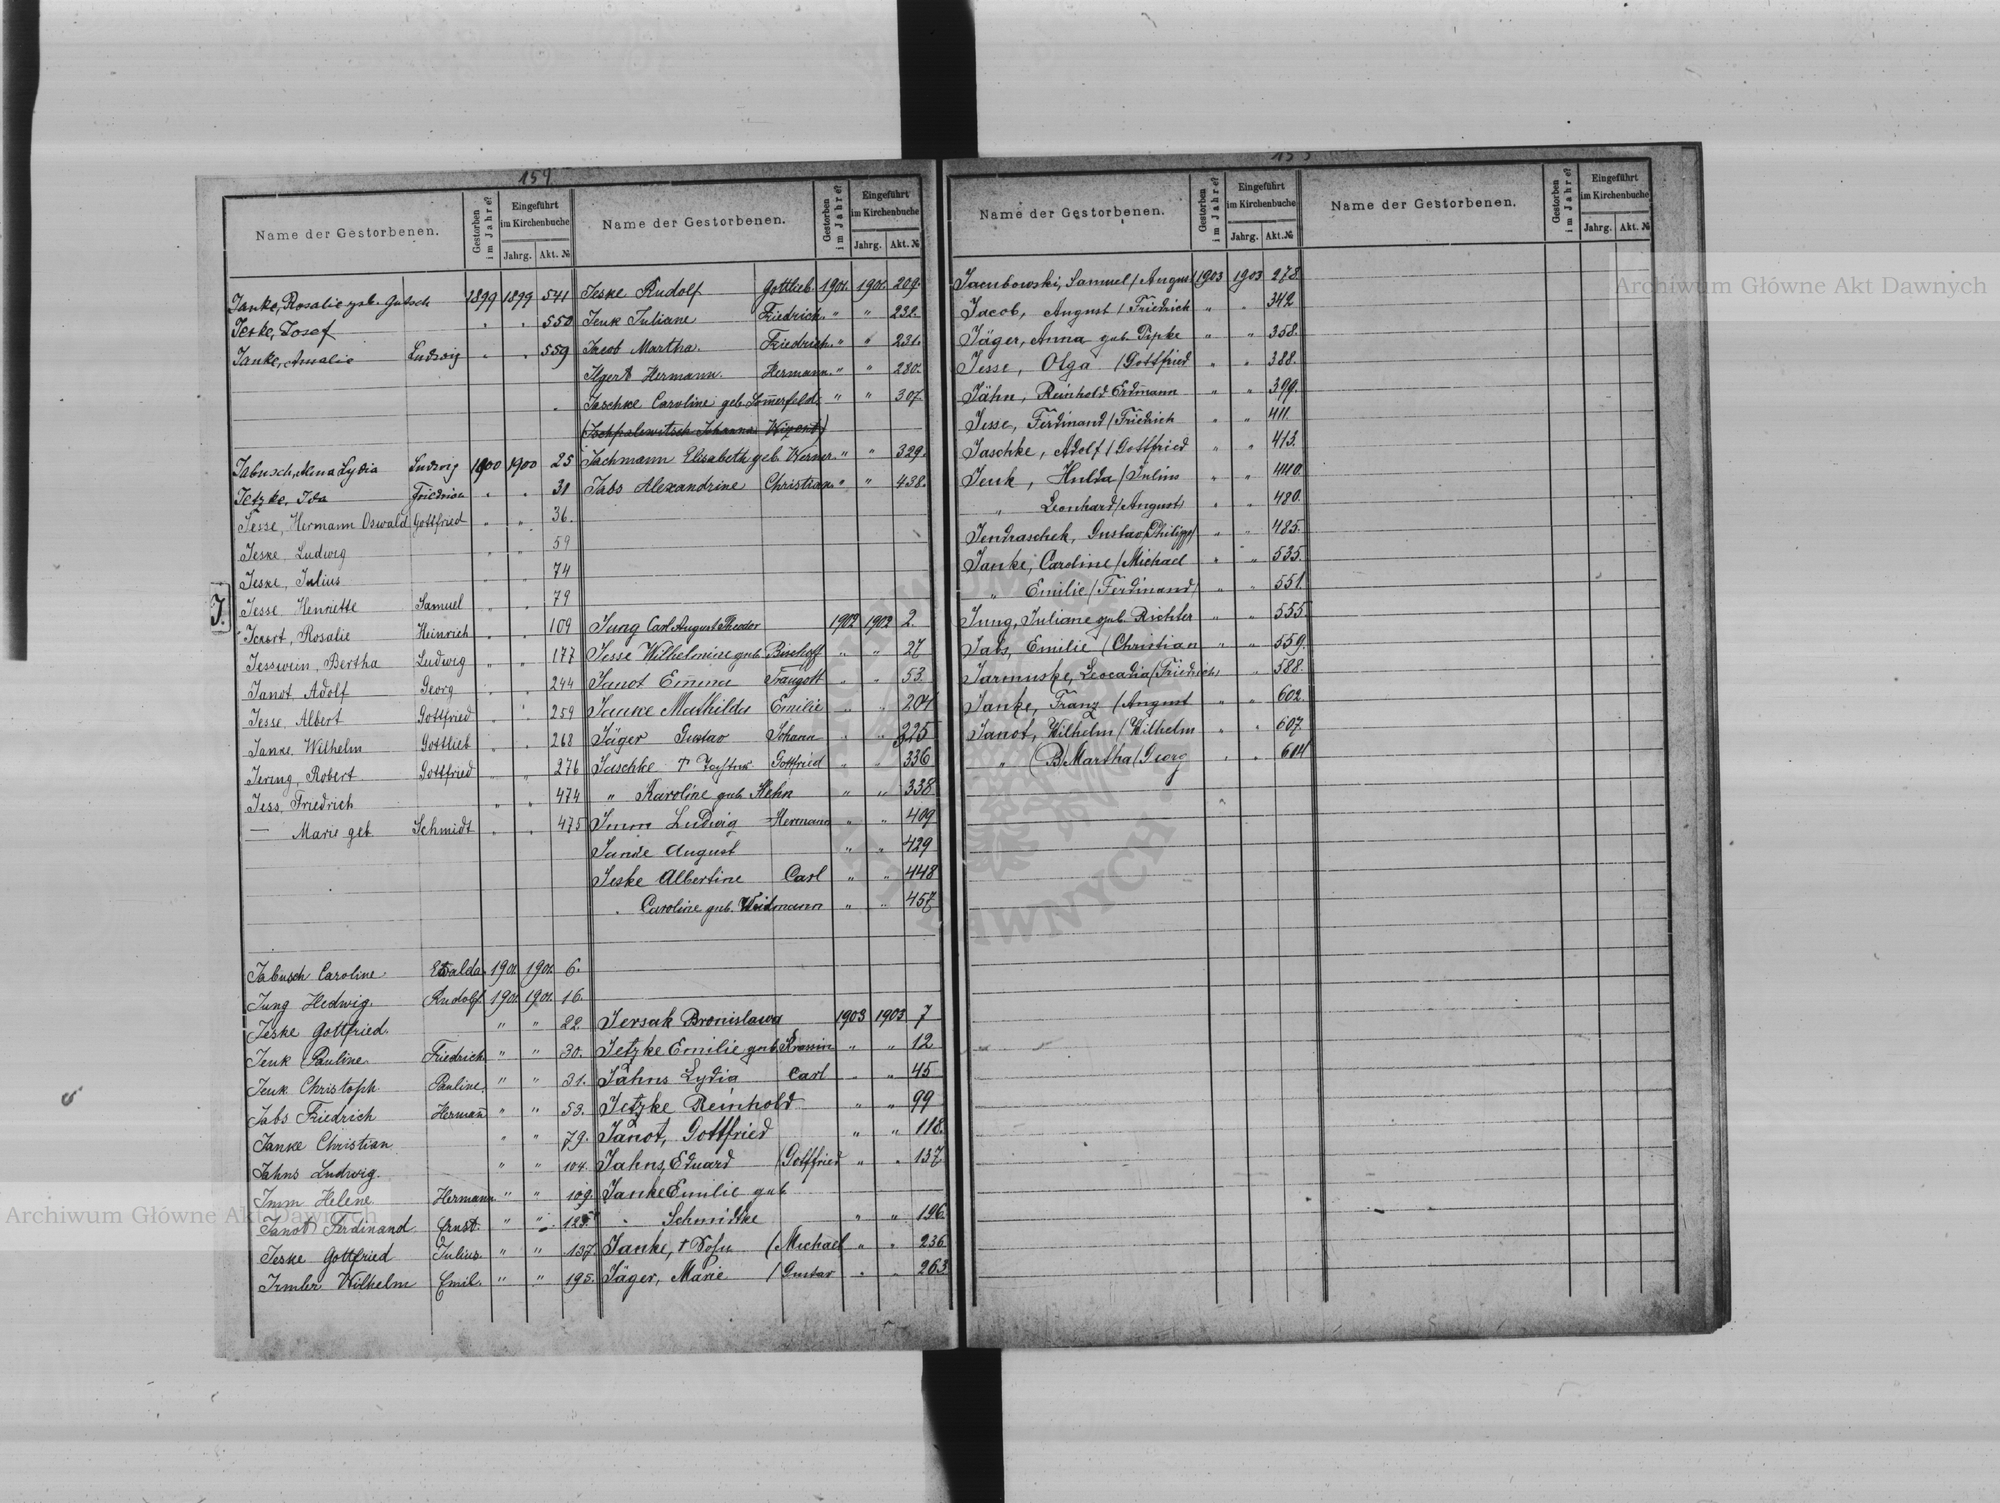 159
Name der Gestorbenen.
Gestorben im Jahre?
Eingeführt im Kirchenbuche
Jahrg. Akt. №
Janke, Rosalie geb. Gutsch 1899 1899 541
Jeske, Josef " " 550
Janke, Amalie Ludwig " " 559
Jabusch, Alma Lydia Ludwig 1900 1900 25
Jetzke, Ida Friedrich " " 31
Jesse, Hermann Oswald Gottfried " " 36.
Jeske Ludwig " " 59
Jeske, Julius 74
J. Jesse Henriette Samuel " " 79
Rosalie Heinrich " " 109
Jesswein, Bertha Ludwig " " 177
Janot, Adolf Georg " " 244
Jesse, Albert Gottfried " " 259
Janke Wilhelm Gottlieb " " 268
Jering, Robert Gottfried " " 276
Jess, Friedrich " " 474
— Marie geb Schmidt " " 475
Jabusch Caroline 1901. 1901. 6.
Jung Hedwig Rudolf 1901. 1901. 16.
Jeske Gottfried. " " 22.
Jenk Pauline Friedrich " " 30.
Jenk Christoph Pauline " " 31.
Jabs Friedrich Hermañ " " 53.
Janke Christian " " 79.
Jahns Ludwig. " " 104.
Imm Helene Hermann " " 109.
Janot Ferdinand Ernst. " "
Jeske Gottfried Julius. " " 137.
Irmler Wilhelm Emil. " " 195.
Name der Gestorbenen.
Gestorben im Jahre?
Eingeführt im Kirchenbuche
Jahrg. Akt. №
Jeske Rudolf Gottlieb 1901. 1901. 209.
Jenk Juliane Friedrich. " " 232.
Jacob Martha. Friedrich " "
Ilgert Hermann. Hermann. " " 280.
Jaschke Caroline geb. Som̄erfeld. " " 307.
Jachmann Elisabeth geb. Werner. " " 329.
Jabs Alexandrine Christian. " " 438.
Jung Carl August Theodor 1902 1902 2.
Jesse Wilhelmine geb. Bischoff " " 27
Janot Em̄ma Traugott " " 53.
Janke Mathilde Emilie " " 204
Jäger Gustav Johann " " 225
Jaschke Gottfried " " 336
" Karoline geb. Hehn " " 338
Imm Ludwig Hermann " " 409
Janke August " " 429
Jeske Albertine Carl " " 448
" Caroline geb. Weidmann " " 457
Jersak Bronislawa 1903 1903 7
Jetzke Emilie geb. " " 12
Jahns Lydia Carl " " 45
Jetzke Reinhold " " 99
Janot, Gottfried " " 118.
Jahns, Eduard /Gottfried " " 137
Janke Emilie geb.
" Schmidtke " " 196
Janke, /Michael " " 236
Jäger, Marie /Gustav " " 263
Name der Gestorbenen.
Gestorben im Jahre?
Eingeführt im Kirchenbuche
Jahrg. Akt. №
Jacubowski, Samuel/August 1903 1903 278.
Jacob, August /Friedrich " " 342
Jäger, Anna geb. Pipke " " 358.
Jesse, Olga /Gottfried " " 388.
Jähn, Reinhold Erdmann " " 399.
Jesse, Ferdinand/Friedrich " " 411.
Jaschke, Adolf/Gottfried " " 413.
Jenk, Hulda /Julius " " 440.
" Leonhard/August " " 480.
Jendraschek, Gustav/Philipp/ " " 485.
Janke, Caroline/Michael " " 535.
" Emilie/Ferdinand/ " " 551.
Jung, Juliane geb. Richter " " 555.
Jabs, Emilie /Christian " " 559.
Jarmuske, Leocadia/Friedrich " " 588.
Janke, Franz /August " " 602.
Janot, Wilhelm/Wilhelm " " 607.
" Martha/Georg " " 614
Name der Gestorbenen.
Gestorben im Jahre?
Eingeführt im Kirchenbuche
Jahrg. Akt. №
Archiwum Główne Akt Dawnych
Archiwum Główne Akt Dawnych
DAWNYCH